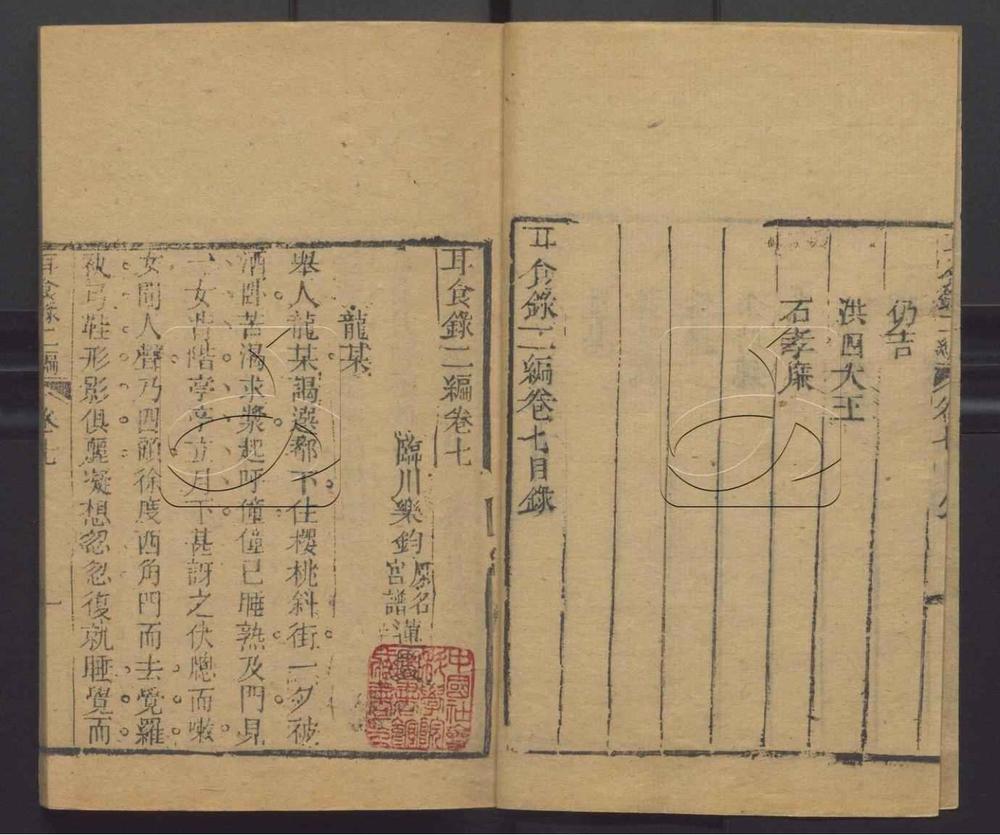 仍吉
洪四大王
石孝廉
耳食錄二編卷七目錄
耳食錄二編卷七
臨川樂鈞
原名
宮譜
龍某
舉人龍某謁選都下住櫻桃斜街一夕被
酒卧苦渴求漿起呼僮僮已睡熟及門見
一女背階亭亭立月下甚訝之伏牕而嗽
女聞人聲乃回顧徐度西角門而去覺羅
襪弓鞋形影俱麗凝想忽忽復就睡覺而
耳食錄二編 卷七 一